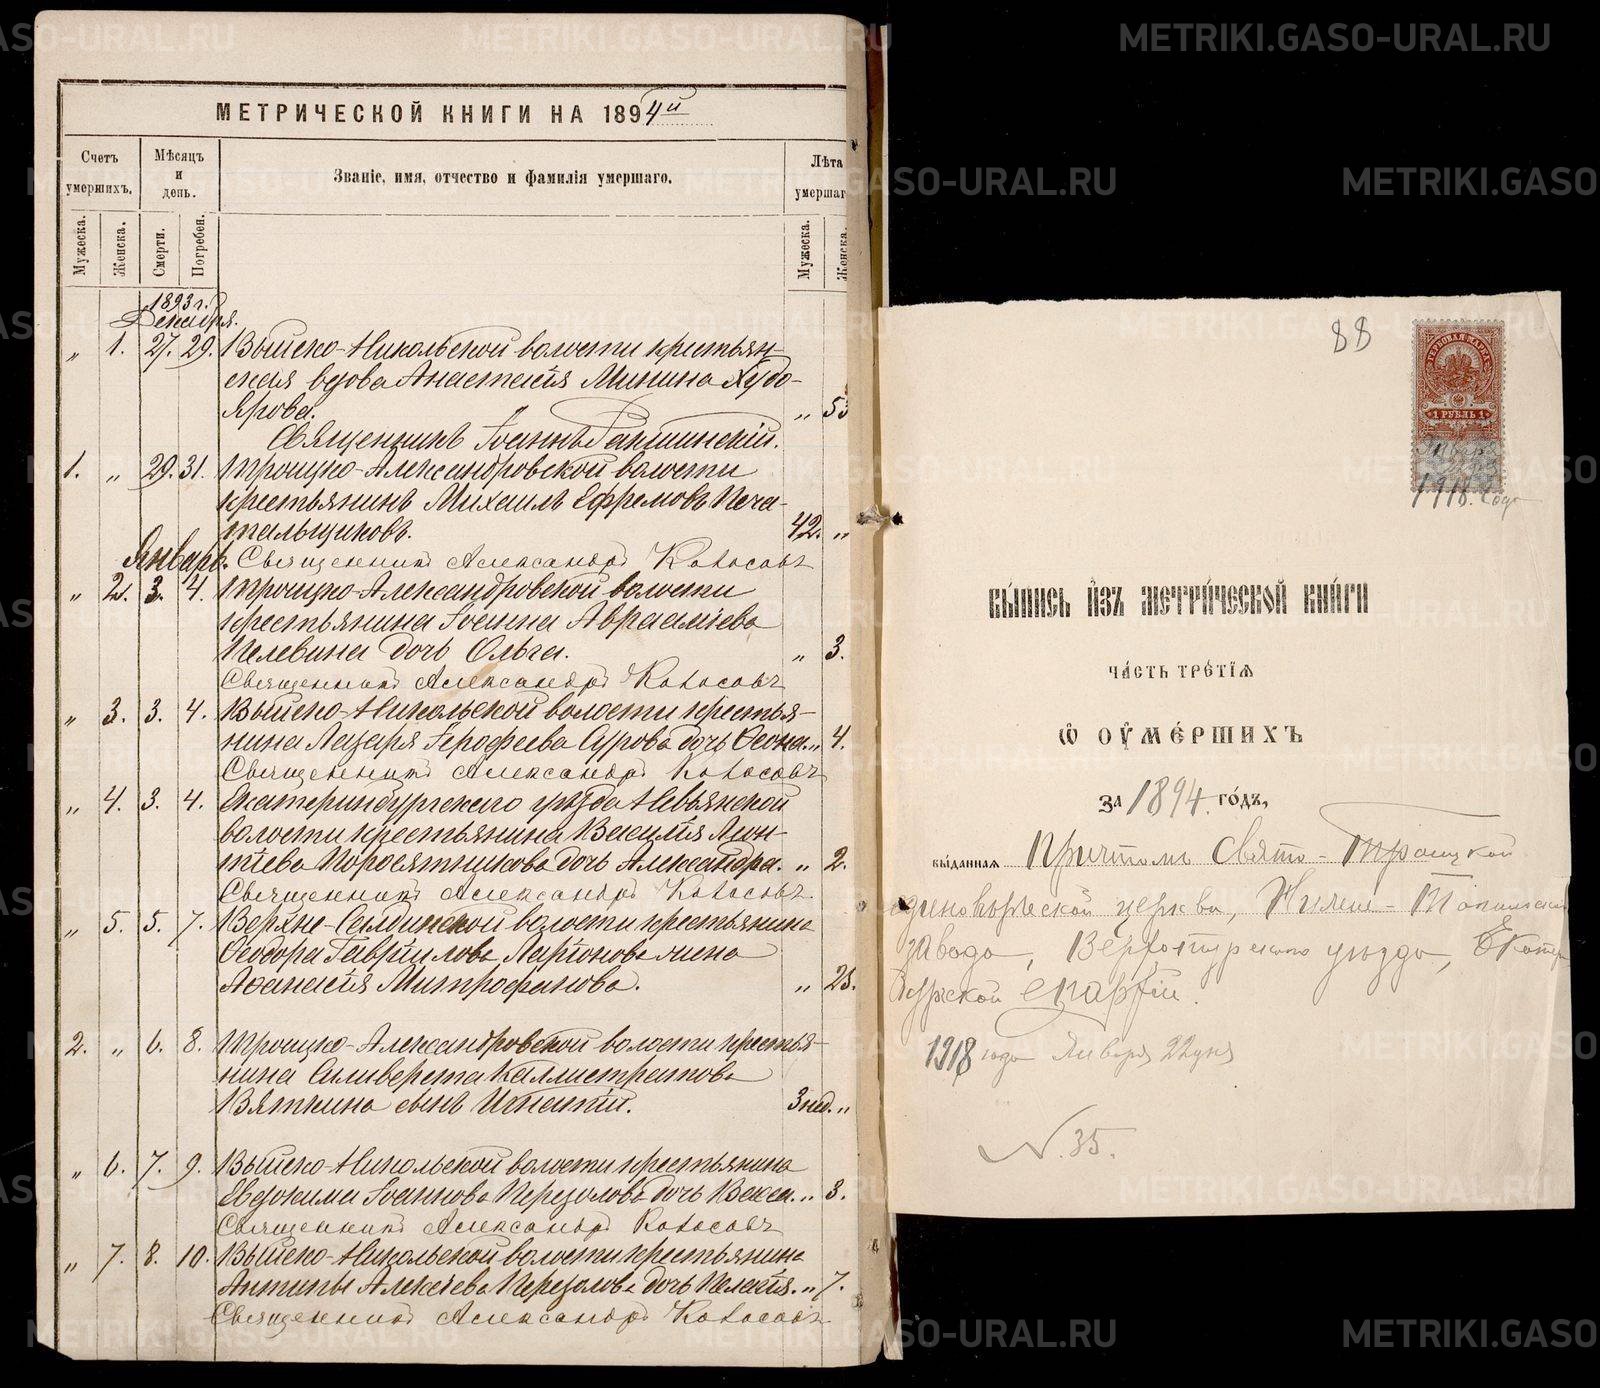 МЕТРИЧЕСКОЙ КНИГИ НА 1894й
Счетъ умершихъ.
Мужеска.
Женска.
Мѣсяцъ и день.
Смерти.
Погребен.
Званіе, имя, отчество и фамилія умершаго.
Лѣта умершаг
Мужеска.
Женска.
1893 г.
Декабря.
„ 1. 27. 29. Выйско-Никольской волости крестьян-
ская вдова Анастасія Минина Худо-
ярова. „ 53
Священникъ Іоаннъ
1. „ 29. 31. Троицко-Александровской волости
крестьянинъ Михаилъ Ефремовъ Печа-
тальщиковъ. 42. „
Январь. Священникъ Александръ Колосовъ
„ 2. 3. 4. Троицко-Александровской волости
крестьянина Іоанна Авраамїева
Пелевина дочь Ольга. „ 3.
Священникъ Александръ Колосовъ
„ 3. 3. 4. Выйско-Никольской волости крестья-
нина Лазаря Іерофеева Сурова дочь Ѳеона. „ 4.
Священникъ Александръ Колосовъ
„ 4. 3. 4. Екатеринбургскаго уѣзда Невьянской
волости крестьянина Василія Леон-
тїева Поросятникова дочь Александра. „ 2.
Священникъ Александръ Колосовъ
„ 5. 5. 7. Верхне-Салдинской волости крестьянина
Ѳеодора Гавріилова Ларіонова жена
Аѳанасія Митрофанова. „ 25.
2. „ 6. 8. Троицко-Александровской волости крестья-
нина Сильверста Каллистратова
Вяткина сынъ Игнатій. 3 нед. „
„ 6. 7. 9. Выйско-Никольской волости крестьянина
Евдокима Іоаннова Перезолова дочь Васса. „ 3.
Священникъ Александръ Колосовъ
„ 7. 8. 10. Выйско-Никольской волости крестьянина
Антипы Алексѣева Перезолова дочь Пелагія. „ 7.
Священникъ Александръ Колосовъ
88
ГЕРБОВАЯ МАРКА
1 РУБЛЬ 1
Января
1918 года
ВЫ́ПИСЬ И҆ЗЪ МЕТРИ́ЧЕСКОЙ КНИ́ГИ
ЧА́СТЬ ТРЕ́ТІѦ
Ѽ ОУ҆МЕ́РШИХЪ
ЗА 1894 ГО́ДЪ,
ВЫ́ДАННАЯ Причтомъ Свято-Троицкой
единоверческой церкви, Нижне-Тагильскаго
завода, Верхотурскаго уѣзда, Екатерин
бургской епархіи.
1918 года Января 22 дня
N. 35.
METRIKI.GASO-URAL.RU